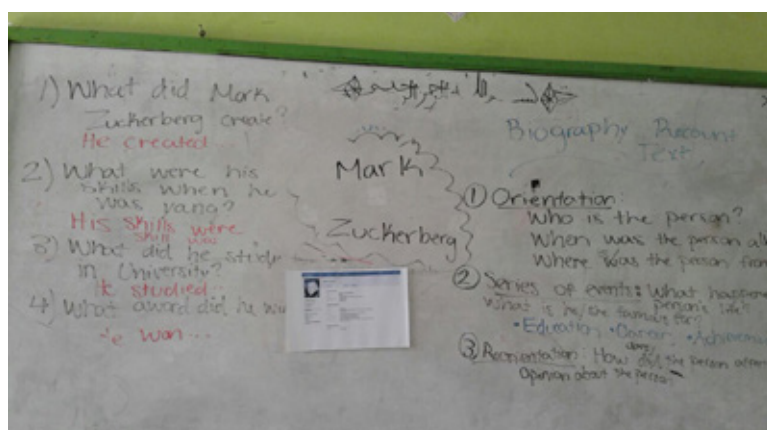 1) What did Mark
Zuckerberg create?
He created...
2) What were his
skills when he
was yang?
His skills were
skill was
3) What did he study
in University?
He studied...
4) What award did he
He won...
Mark
Zuckerberg
Biography Recount
Text
① Orientation:
Who is the person?
When was the person
Where was the person from
② Series of events: What
What is he/she famous for?
person's life?
• Education • Career •
③ Reorientation: How
the person
about the person